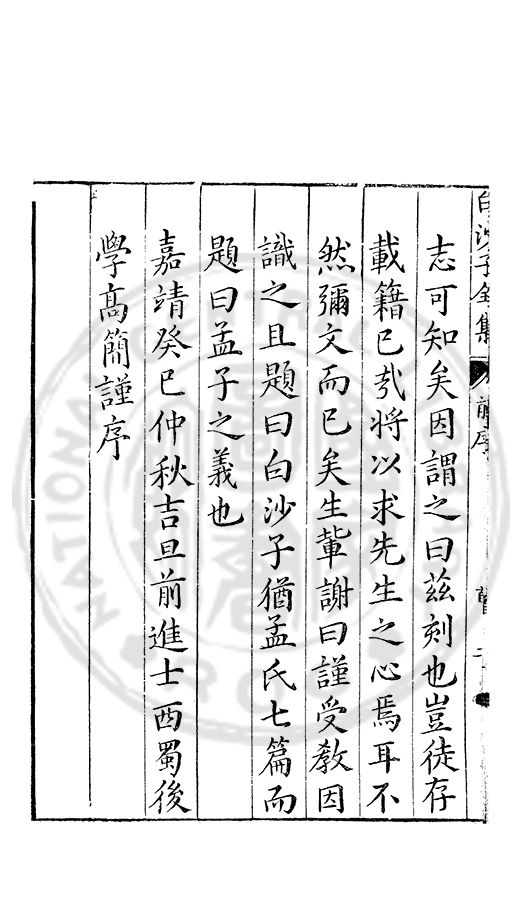 白沙子全集 前序
志可知矣因謂之曰茲刻也豈徒存
載籍已㢤將以求先生之心焉耳不
然彌文而已矣生軰謝曰謹受教因
識之且題曰白沙子猶孟氏七篇而
題曰孟子之義也
嘉靖癸巳仲秋吉旦前進士西蜀後
學高簡謹序
NATIONAL